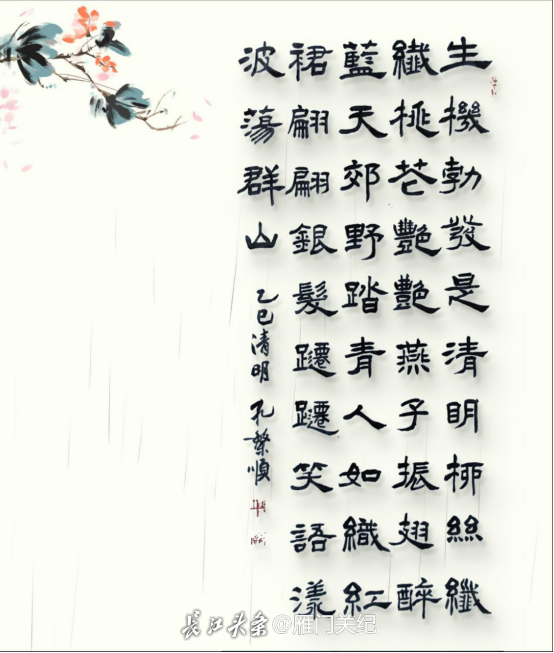 生機勃發是清明柳絲纖
纖桃花艷艷燕子振翅醉
藍天郊野踏青人如織紅
裙翩翩銀髮躚躚笑語漾
波蕩群山
乙巳清明 孔繁順
长江头条 @雁门关纪